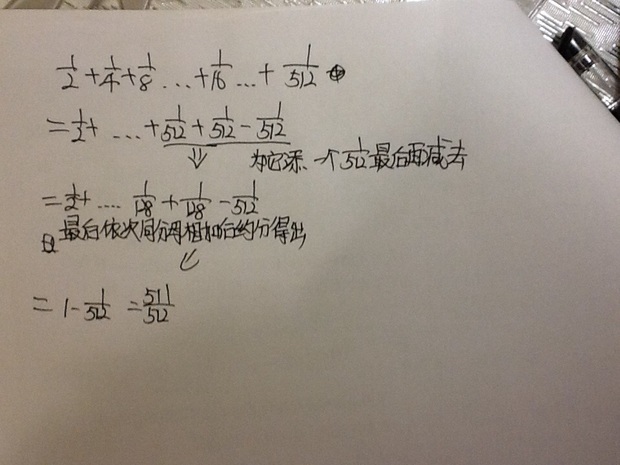 1/2 + 1/4 + 1/8 ... + 1/16 ... + 1/512
= 1/2 + ... + 1/512 + 1/512 - 1/512
为它添一个1/512最后再减去
= 1/2 + .... 1/128 + 1/128 - 1/512
最后依次同分母相加后约分得出
= 1 - 1/512 = 511/512